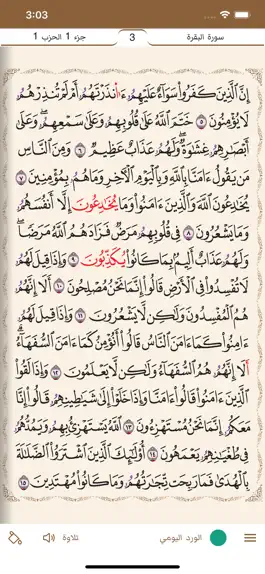 3:03
سورة البقرة
3
جزء 1 الحزب 1
إِنَّ ٱلَّذِينَ كَفَرُواْ سَوَآءٌ عَلَيْهِمُۥ ءَا۬نذَرْتَهُمُۥ أَمْ لَمْ تُنذِرْهُمُۥ
لَا يُؤْمِنُونَ ٥ خَتَمَ ٱللَّهُ عَلَىٰ قُلُوبِهِمُۥ وَعَلَىٰ سَمْعِهِمُۥ وَعَلَىٰ
أَبْصَٰرِهِمُۥ غِشَٰوَةٌ وَلَهُمُۥ عَذَابٌ عَظِيمٌ ٦ وَمِنَ ٱلنَّاسِ
مَن يَقُولُ ءَامَنَّا بِٱللَّهِ وَبِٱلْيَوْمِ ٱلْأٓخِرِ وَمَا هُمُۥ بِمُؤْمِنِينَ ٧
يُخَٰدِعُونَ ٱللَّهَ وَٱلَّذِينَ ءَامَنُواْ وَمَا يُخَٰدِعُونَ إِلَّآ أَنفُسَهُمُۥ
وَمَا يَشْعُرُونَ ٨ فِي قُلُوبِهِمُۥ مَرَضٌ فَزَادَهُمُ ٱللَّهُ مَرَضًا
وَلَهُمُۥ عَذَابٌ أَلِيمٌ بِمَا كَانُواْ يُكَذِّبُونَ ٩ وَإِذَا قِيلَ لَهُمُۥ
لَا تُفْسِدُواْ فِي ٱلْأَرْضِ قَالُوٓاْ إِنَّمَا نَحْنُ مُصْلِحُونَ ١٠ أَلَآ إِنَّهُمُۥ
هُمُ ٱلْمُفْسِدُونَ وَلَٰكِن لَّا يَشْعُرُونَ ١١ وَإِذَا قِيلَ لَهُمُۥ
ءَامِنُواْ كَمَآ ءَامَنَ ٱلنَّاسُ قَالُوٓاْ أَنُؤْمِنُ كَمَآ ءَامَنَ ٱلسُّفَهَآءُ
أَلَآ إِنَّهُمُۥ هُمُ ٱلسُّفَهَآءُ وَلَٰكِن لَّا يَعْلَمُونَ ١٢ وَإِذَا لَقُواْ
ٱلَّذِينَ ءَامَنُواْ قَالُوٓاْ ءَامَنَّا وَإِذَا خَلَوْاْ إِلَىٰ شَيَٰطِينِهِمُۥ قَالُوٓاْ إِنَّا
مَعَكُمُۥ إِنَّمَا نَحْنُ مُسْتَهْزِءُونَ ١٣ ٱللَّهُ يَسْتَهْزِئُ بِهِمُۥ وَيَمُدُّهُمُۥ
فِي طُغْيَٰنِهِمُۥ يَعْمَهُونَ ١٤ أُوْلَٰٓئِكَ ٱلَّذِينَ ٱشْتَرَوُاْ ٱلضَّلَٰلَةَ
بِٱلْهُدَىٰ فَمَا رَبِحَت تِّجَٰرَتُهُمُۥ وَمَا كَانُواْ مُهْتَدِينَ ١٥
الورد اليومي
تلاوة